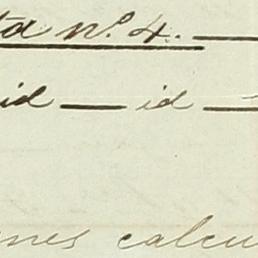 ta nº 4. —
id — id —
nes calcu